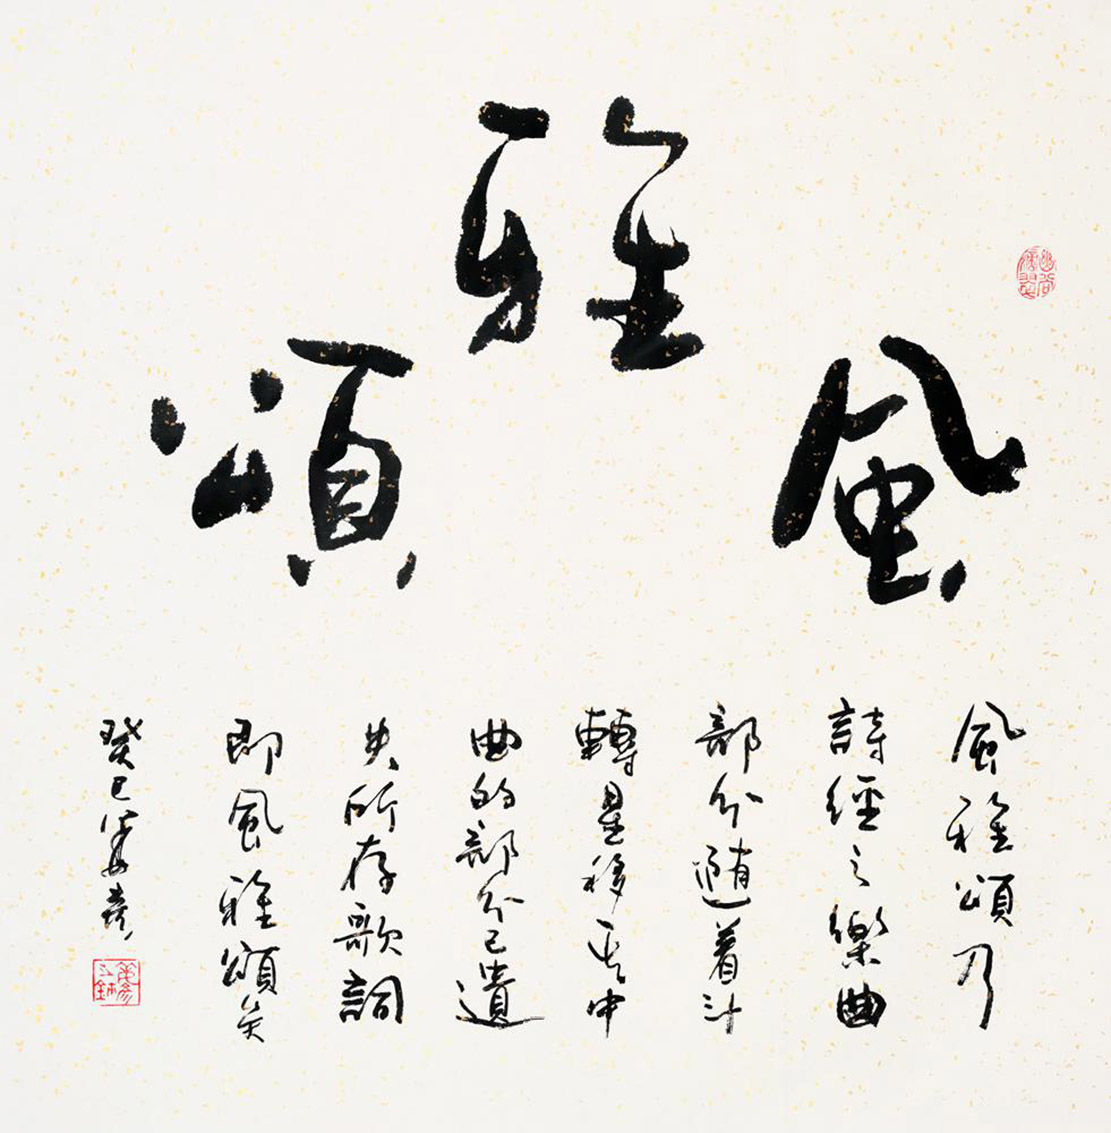 風雅頌
風雅頌乃
詩經之樂曲
部分隨着斗
轉星移其中
曲的部分已遺
失所存歌詞
即風雅頌矣
癸巳